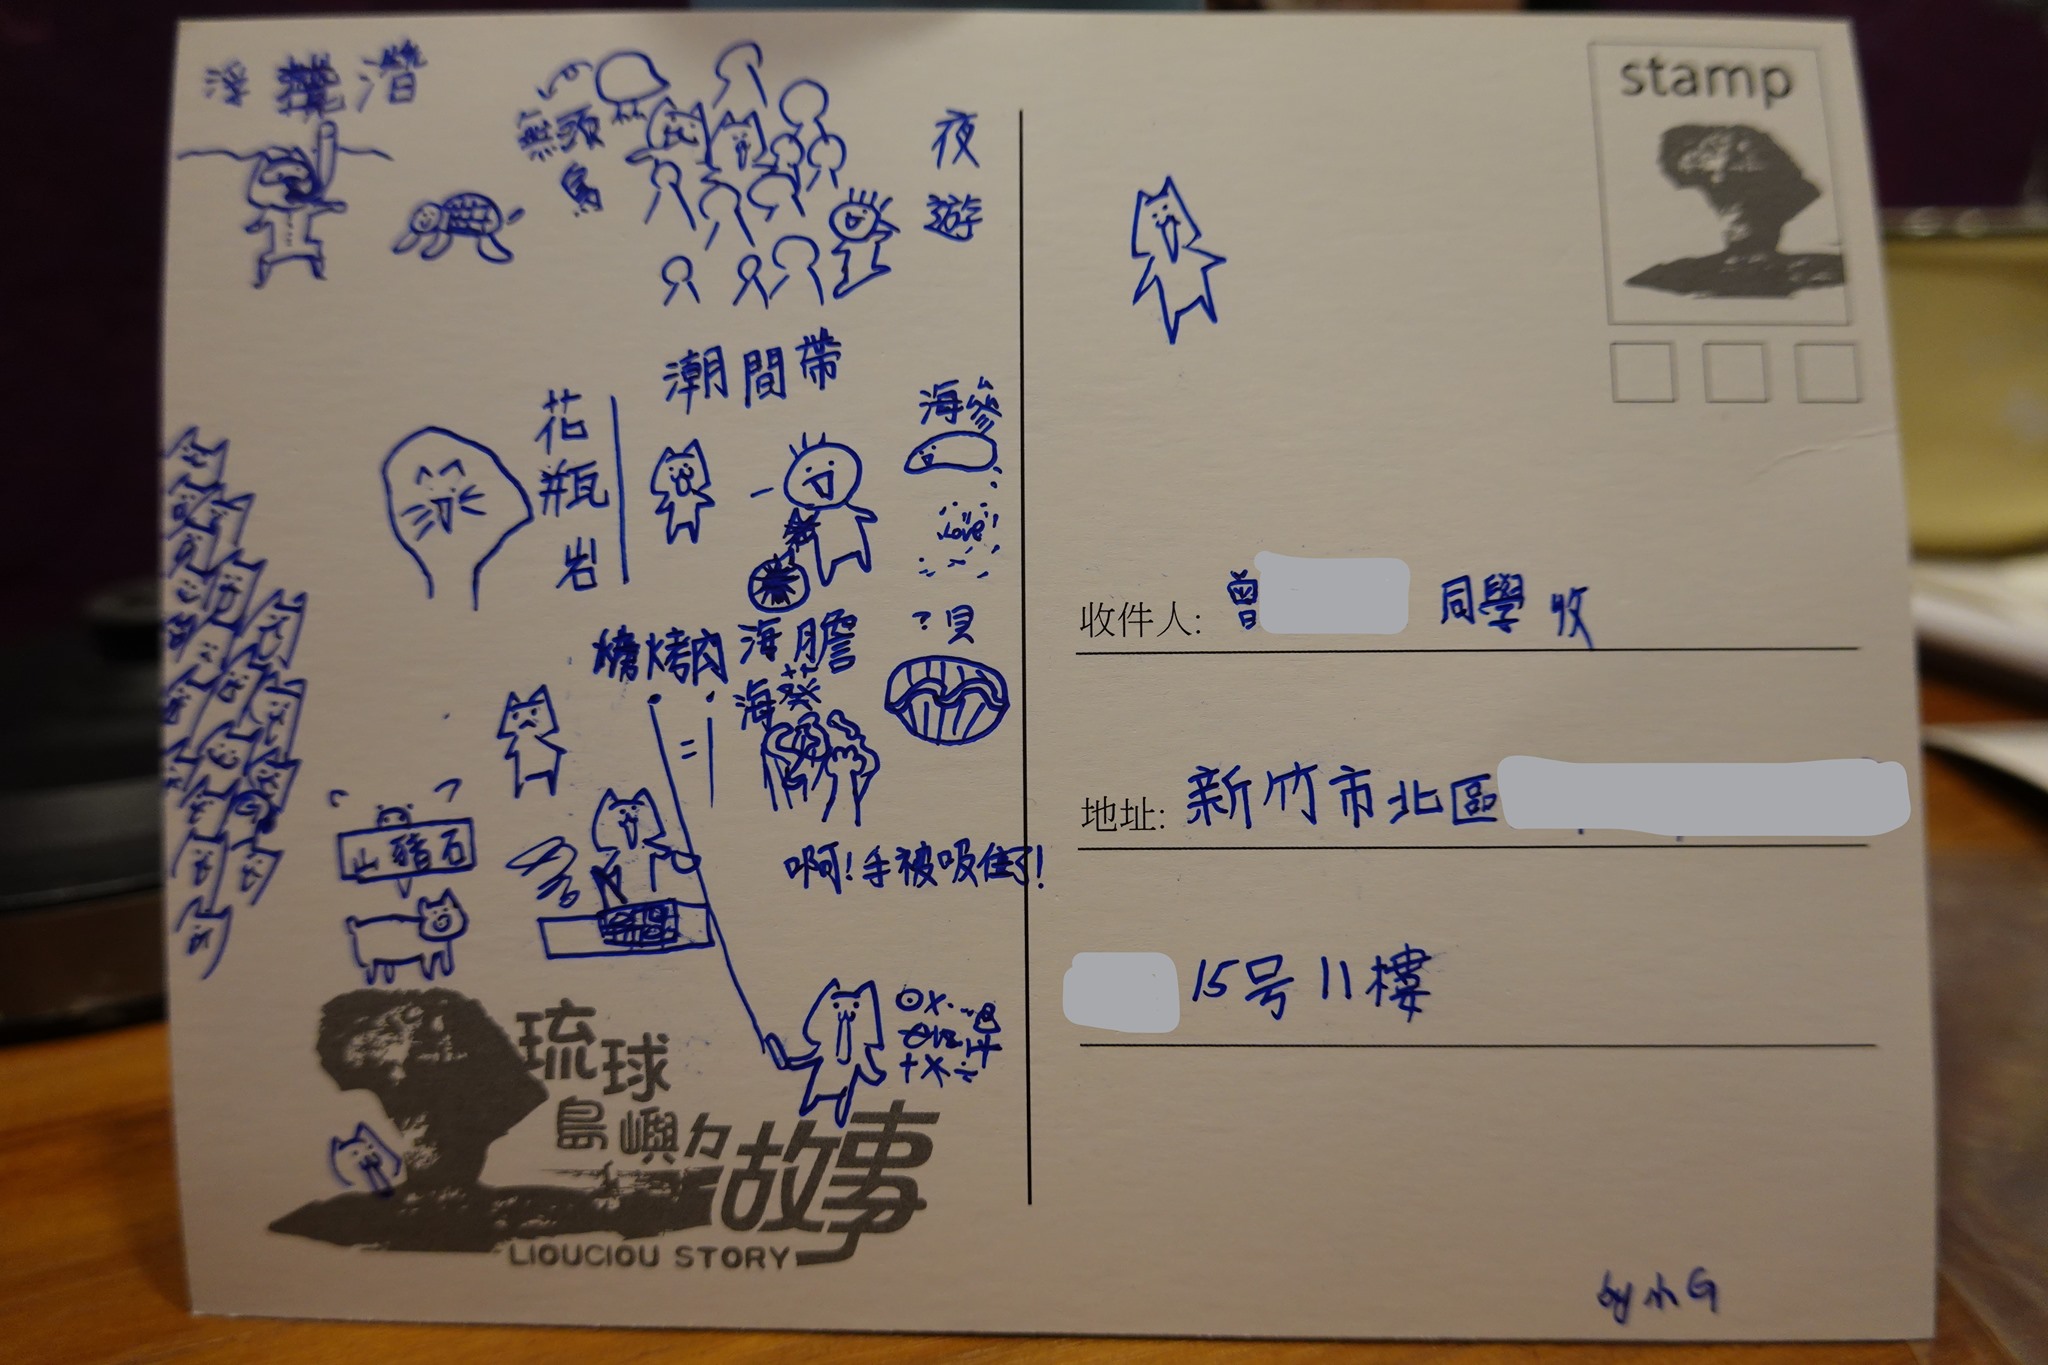 浮潛
無頭鳥
夜遊
潮間帶
花瓶岩
海參
Love
?貝
燒烤肉
海膽
海葵
啊!手被吸住了!
山豬石
琉球
島嶼ㄉ故事
LIOUCIOU STORY
stamp
收件人: 曾 同學 收
地址: 新竹市北區
15号11樓
by 小G